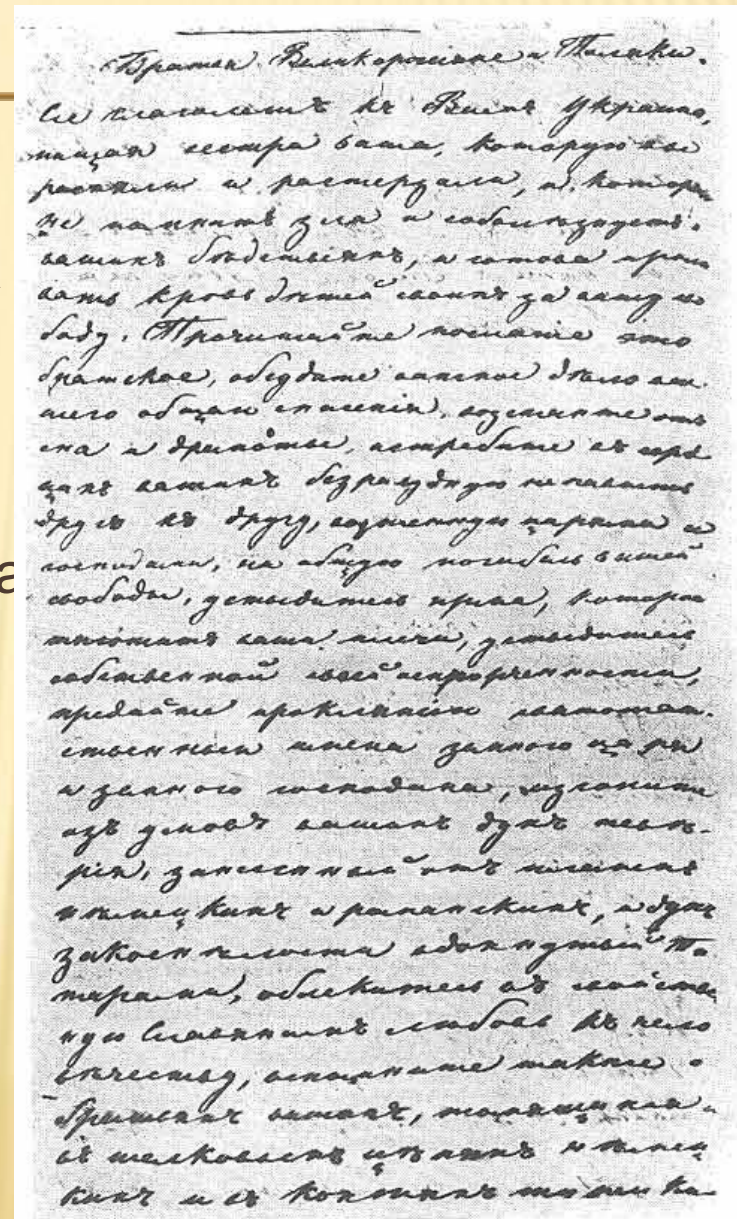 Братья Великороссіяне и Поляки.
Се глаголетъ къ Вамъ Украина,
нищая сестра ваша, которую вы
распяли и растерзали, и которая
не помнитъ зла и соболѣзнуетъ
вашимъ бѣдствіямъ, и готова проли
вать кровь дѣтей своихъ за вашу сво
боду. Прочитайте посланіе это
братское, обсудите важное дѣло ва
шего общаго спасенія, возстаньте отъ
сна и дремоты, истребите въ серд
цахъ вашихъ безразсудную ненависть
другъ къ другу, возженную царями и
господами, на общую погибель вашей
свободы, устыдитесь ярма, которое
тяготитъ ваши плечи, устыдитесь
собственной своей испорченности,
предайте проклятію святотат
ственныя имена земного царя
и земного господина, изгоните
изъ умовъ вашихъ духъ невѣ-
рія, занесенный отъ племенъ
нѣмецкихъ и романскихъ, и духъ
закоснѣлости вдохнутый Та
тарами, облекитесь въ свойствен
ную Славянамъ любовь къ чело
вѣчеству, вспомните также о
братьяхъ вашихъ, томящихся
въ шелковыхъ цѣпяхъ нѣмец
кихъ и въ когтяхъ турецки
а